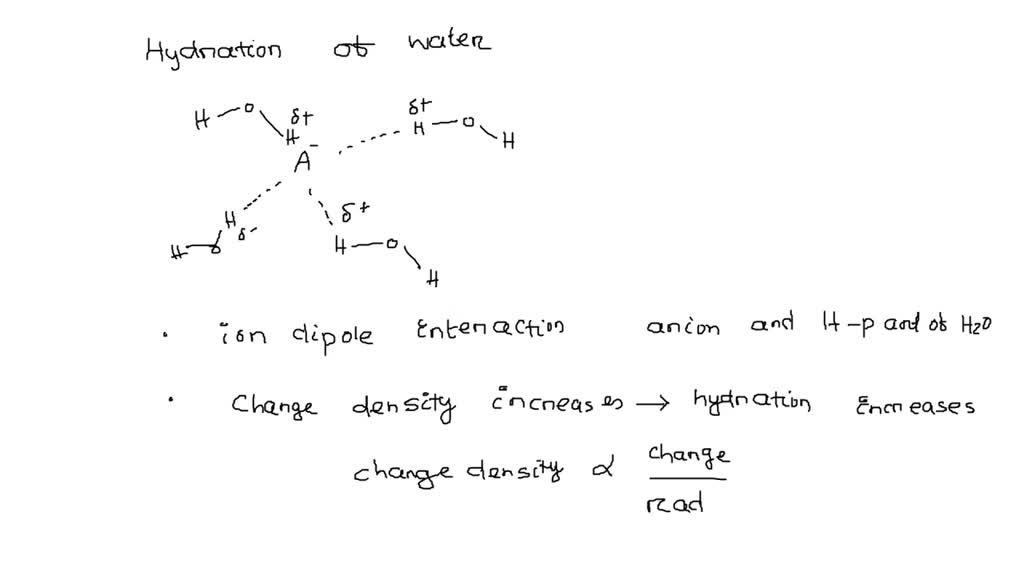 Hydration of water
H - O δ+ δ+
H H - O
A⁻ H
H δ+
H - O δ- H - O
H
· ion dipole interaction anion and H-part of H2O
· Charge density increases → hydration increases
charge density ∝ charge
rad